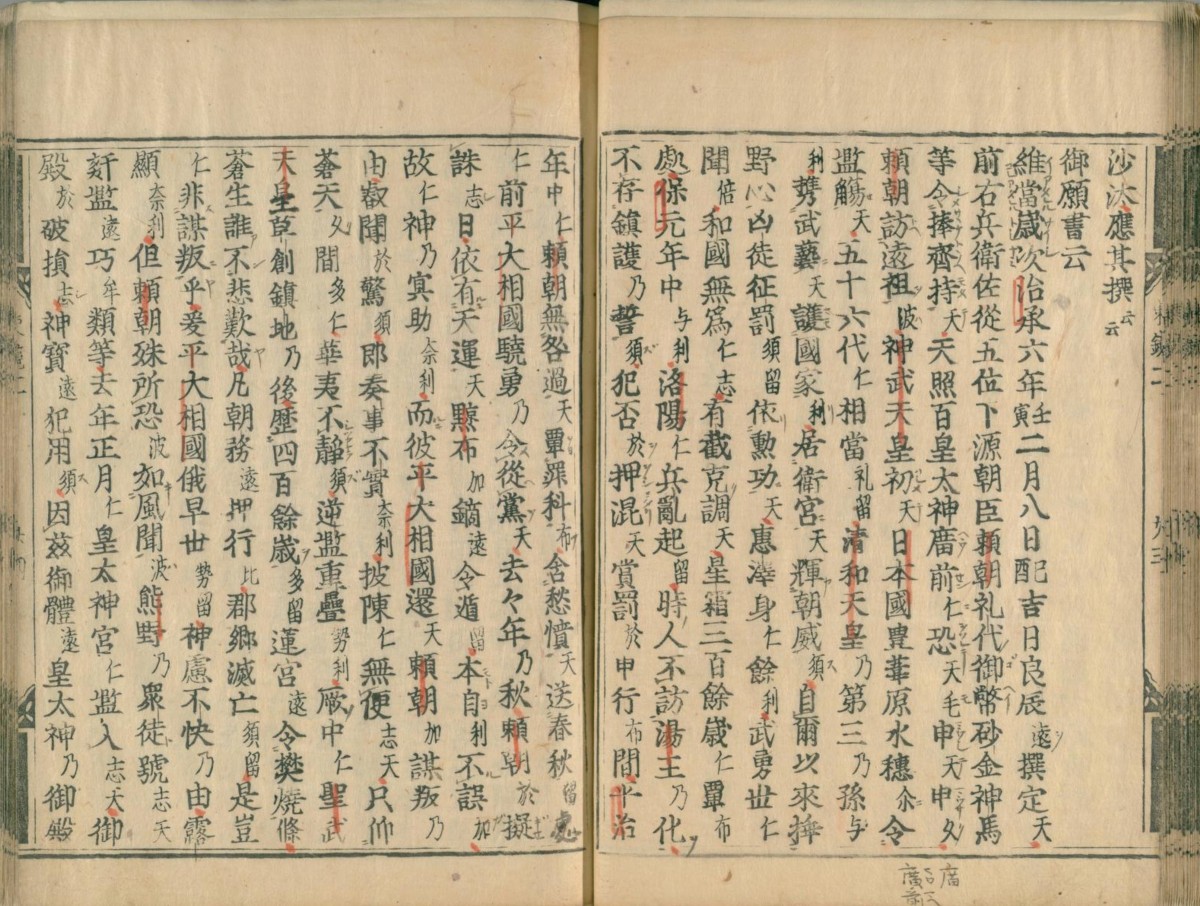 沙汰應其撰云云
御願書云
維當歲次治承六年壬寅二月八日配吉日良辰遠撰定天
前右兵衛佐從五位下源朝臣賴朝礼代御幣砂金神馬
等令捧齊持天天照百皇太神廣前仁恐天恐天毛申天申久
賴朝訪遠祖波神武天皇初天日本國豊葦原水穗尒令
濫觴天五十六代仁相當礼留清和天皇乃第三乃孫与
利携武藝天護國家利居衛宮天輝朝威須自爾以來挿
野心凶徒征罰須留依勲功天惠澤身仁餘利武勇世仁
聞倍和國無爲仁志有截克調天星霜三百餘歲仁覃布
處保元年中与利洛陽仁兵亂起留時人不訪湯王乃化
不存鎮護乃誓須犯否於押混天賞罰於申行布間平治
年中仁賴朝無各過天覃罪科布含愁憤天送春秋留處
仁前平大相國驍勇乃令從黨天去々年乃秋賴朝於擬
誅志日依有天運天黥布加鏑遠令遁留本自利不誤加
故仁神乃冥助奈利而彼平大相國還天賴朝加謀叛乃
由叡聞於驚須即奏事不實奈利披陳仁無便志天只仰
蒼天久間多仁華夷不静須逆濫重疊勢利厥中仁聖武
天皇草創鎮地乃後歷四百餘歲多留蓮宮遠令樊燒條
蒼生誰不悲歎哉凡朝務遠押行比郡郷滅亡須留是豈
仁非謀叛乎爰平大相國俄早世勢留神慮不快乃由露
顯奈利但賴朝殊所恐波如風聞波熊野乃衆徒號志天
姧濫遠巧牟類等去年正月仁皇太神宮仁濫入志天御
殿於破損志神寶遠犯用須因茲御體遠皇太神乃御殿